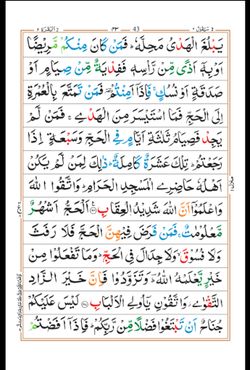 يَبْلُغَ الْهَدْىُ مَحِلَّهٗ ؕ فَمَنْ كَانَ مِنْكُمْ مَّرِيْضًا
اَوْ بِهٖۤ اَذًى مِّنْ رَّاْسِهٖ فَفِدْيَةٌ مِّنْ صِيَامٍ اَوْ
صَدَقَةٍ اَوْ نُسُكٍ ۚ فَاِذَاۤ اَمِنْتُمْ ۥ فَمَنْ تَمَتَّعَ بِالْعُمْرَةِ
اِلَى الْحَجِّ فَمَا اسْتَيْسَرَ مِنَ الْهَدْىِ ۚ فَمَنْ لَّمْ
يَجِدْ فَصِيَامُ ثَلٰثَةِ اَيَّامٍ فِى الْحَجِّ وَسَبْعَةٍ اِذَا
رَجَعْتُمْ ؕ تِلْكَ عَشَرَةٌ كَامِلَةٌ ؕ ذٰلِكَ لِمَنْ لَّمْ يَكُنْ
اَهْلُهٗ حَاضِرِى الْمَسْجِدِ الْحَرَامِ ؕ وَاتَّقُوا اللّٰهَ
وَاعْلَمُوْۤا اَنَّ اللّٰهَ شَدِيْدُ الْعِقَابِ اَلْحَجُّ اَشْهُرٌ
مَّعْلُوْمٰتٌ ۚ فَمَنْ فَرَضَ فِيْهِنَّ الْحَجَّ فَلَا رَفَثَ
وَلَا فُسُوْقَ ۙ وَلَا جِدَالَ فِى الْحَجِّ ؕ وَمَا تَفْعَلُوْا مِنْ
خَيْرٍ يَّعْلَمْهُ اللّٰهُ ؔؕ وَتَزَوَّدُوْا فَاِنَّ خَيْرَ الزَّادِ
التَّقْوٰى ۫ وَاتَّقُوْنِ يٰۤاُولِى الْاَلْبَابِ لَيْسَ عَلَيْكُمْ
جُنَاحٌ اَنْ تَبْتَغُوْا فَضْلًا مِّنْ رَّبِّكُمْ ؕ فَاِذَاۤ اَفَضْتُمْ